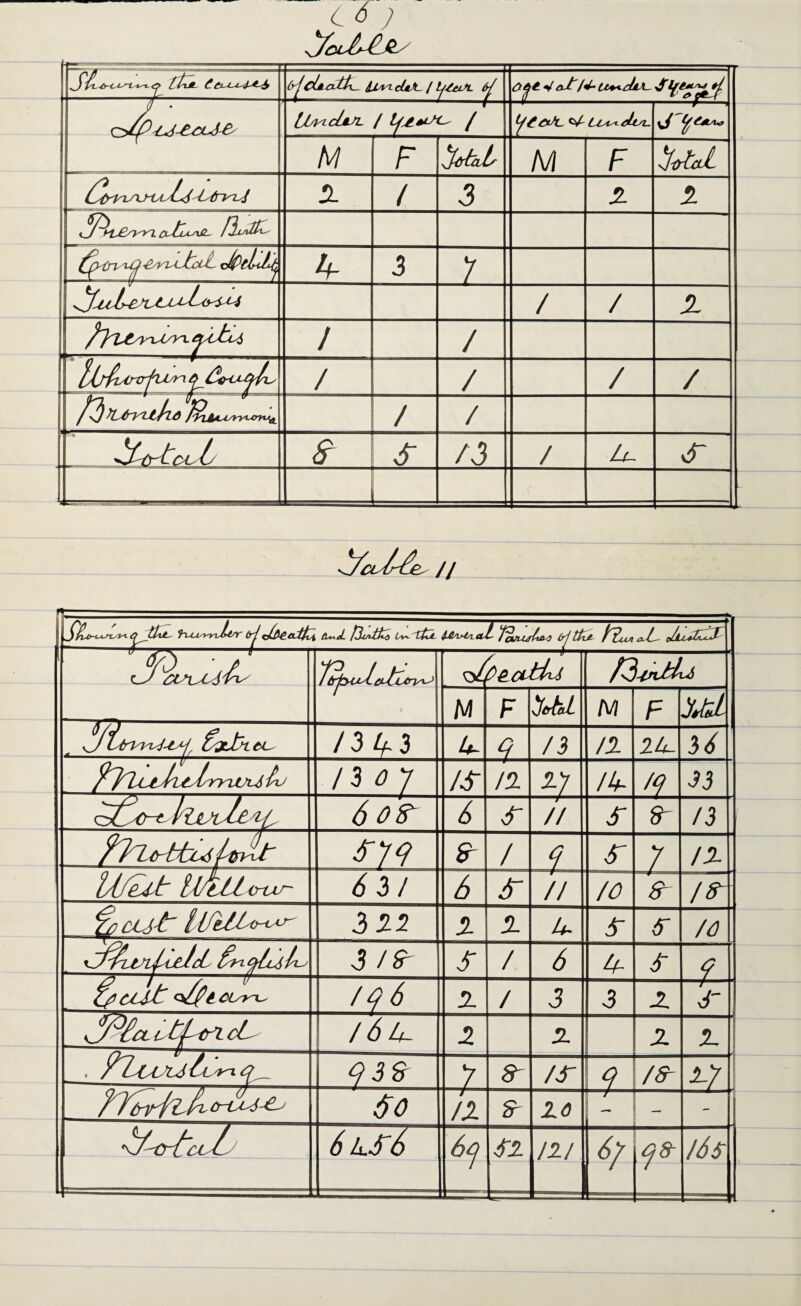 (6)
Table
Showing the causes of death under 1 year of age & at 1 & under 5 years of age
Disease Under 1 year 1 year & under 5 years
M F Total M F Total
Convulsions 2 1 3 2 2
Premature Birth
Congenital Debility 4 3 7
Tuberculosis 1 1 2
Meningitis 1 1
Whooping Cough 1 1 1 1
Broncho Pneumonia 1 1
Total 8 5 13 1 4 5
Table 11
Showing the number of Deaths and Births in the several Parishes of the Rural District
Parish Population Deaths Births
M F Total M F Total
Romsey Extra 1343 4 9 13 12 24 36
Michelmersh 1307 15 12 27 14 19 33
Lockerley 608 6 5 11 5 8 13
Mottisfont 579 8 1 9 5 7 12
West Wellow 631 6 5 11 10 8 18
East Wellow 322 2 2 4 5 5 10
Sherfield English 318 5 1 6 4 5 9
East Dean 196 2 1 3 3 2 5
Plaitford 164 2 2 2 2
Nursling 938 7 8 15 9 18 27
Workhouse 50 12 8 20 - - -
Total 6456 69 52 121 67 98 165